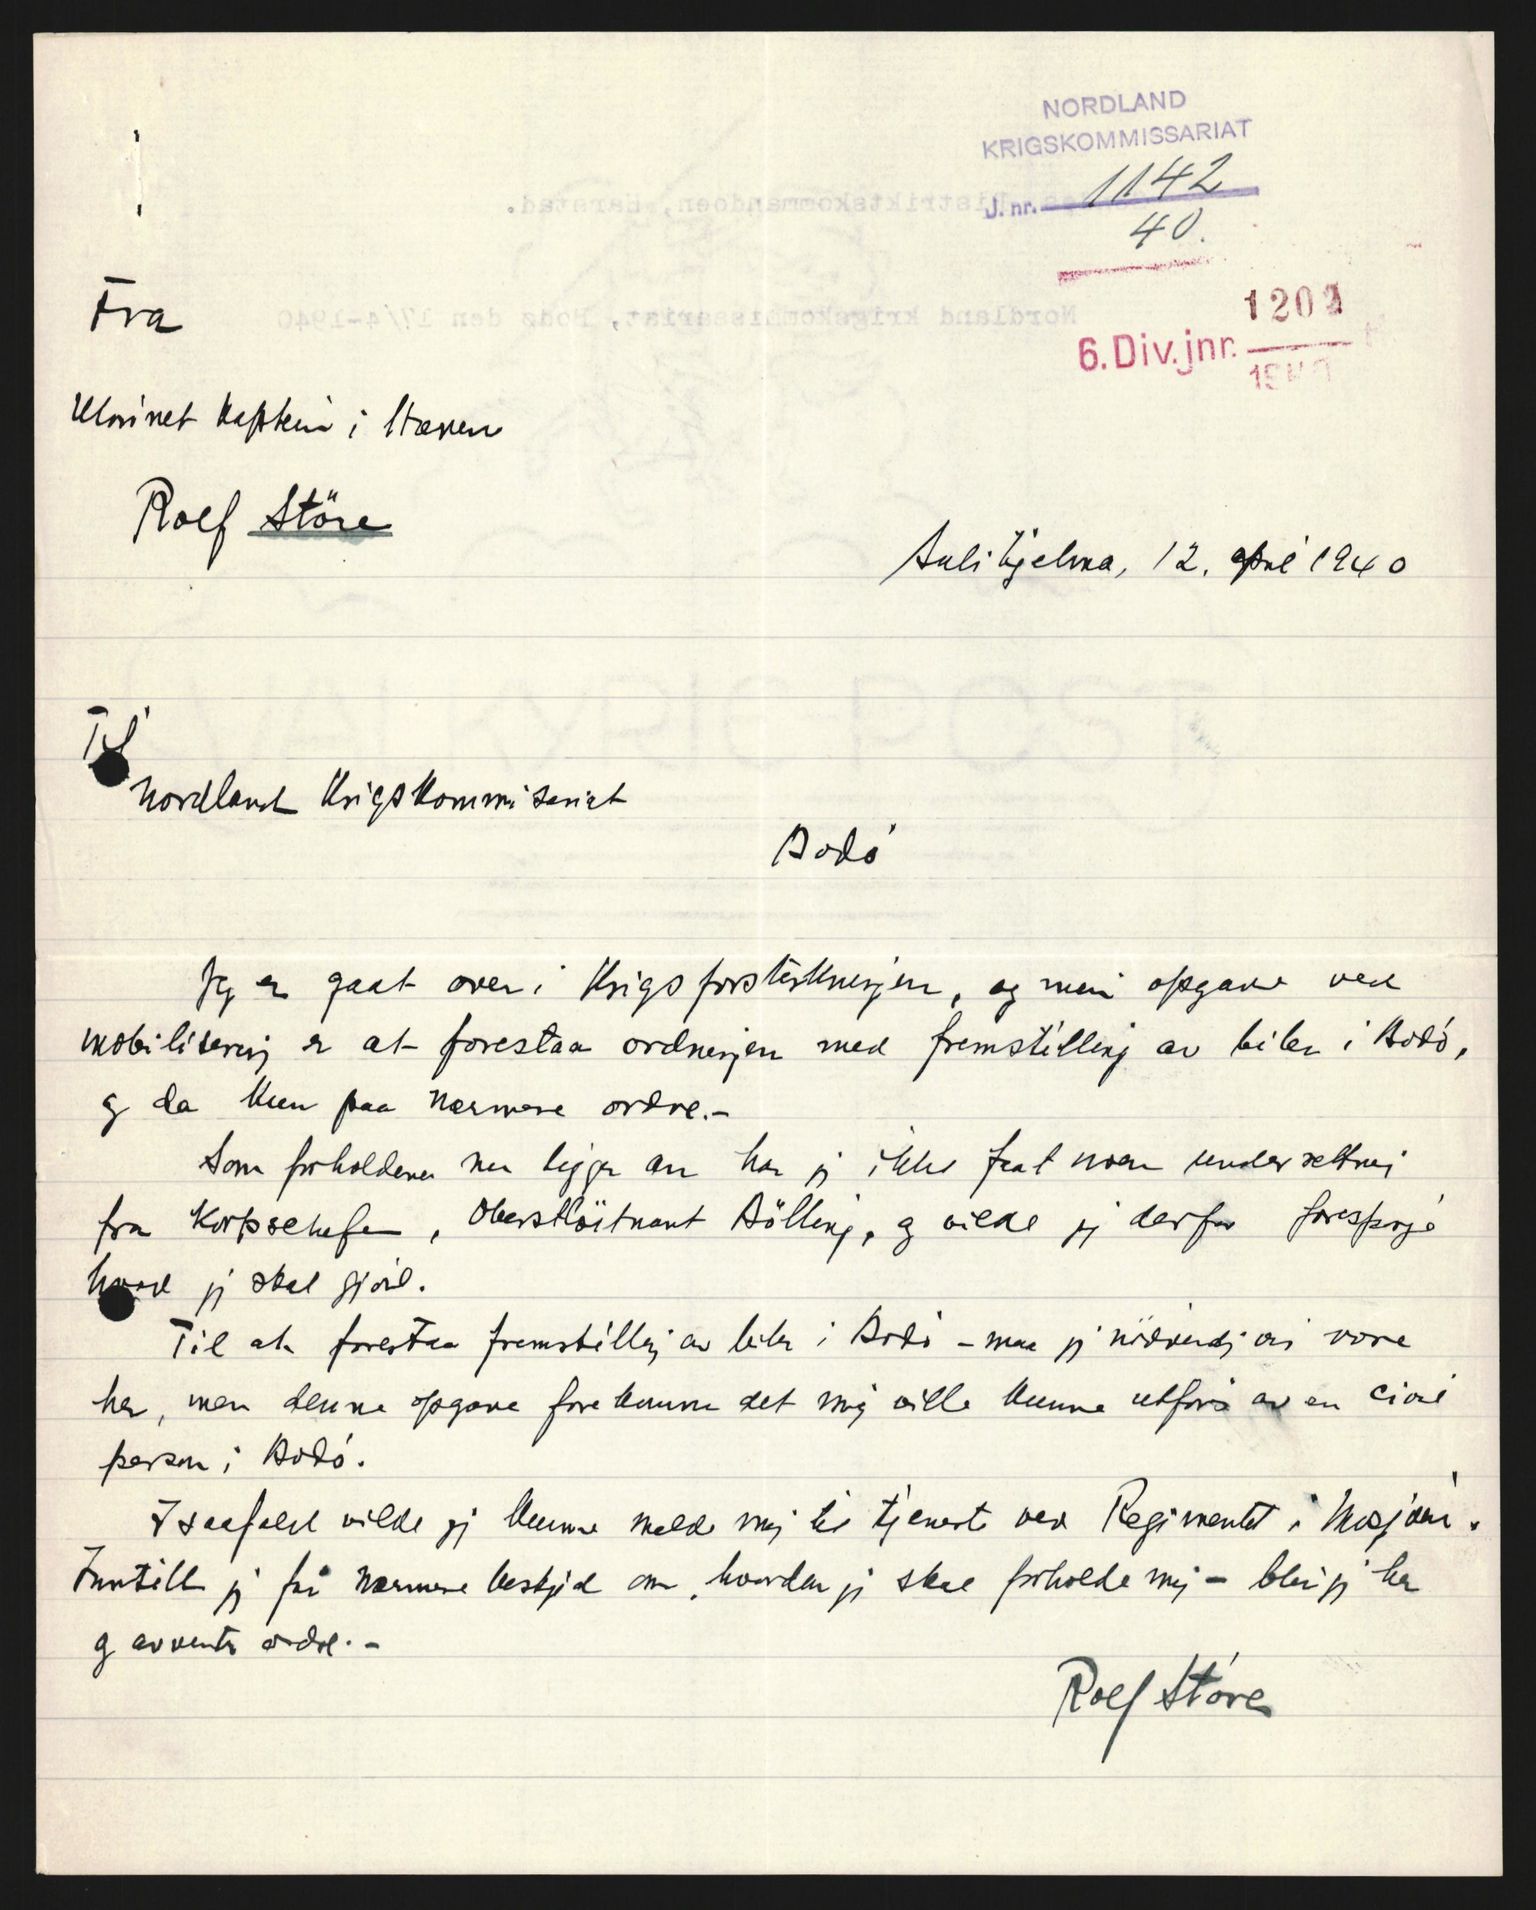 NORDLAND
KRIGSKOMMISSARIAT
J. nr. 1142
40.
1202
6. Div. jnr.
Fra
Kaptein i Hæren
Rolf Störe
Sulitjelma, 12. april 1940
Til
Nordland Krigskommisariat
Bodó
Jeg er gaat over i Krigsforsterkningen, og min opgave ved
mobilisering er at forestaa ordningen med fremstilling av biler i Bodó,
og da kun paa nærmere ordre.-
Som forholdene nu ligger an har jeg ikke faat noen underretning
fra Korpschefen, Oberstlöitnant Bölling, og vilde jeg derfor forespørje
hvad jeg skal gjöre.
Til at forestaa fremstilling av biler i Bodó - maa jeg nödvendigvis være
her, men denne opgave forekommer det mig ville kunne utføres av en civil
person i Bodó.
Isaafald vilde jeg kunne melde mig til tjeneste ved Regimentet i Mosjøen.
Inntill jeg får nærmere beskjed om, hvordan jeg skal forholde mig - blir jeg her
og avventer ordre.-
Rolf Störe
Nordland krigskommissariat, Bodø den 17/4-1940
Distriktskommandoen, Harstad.